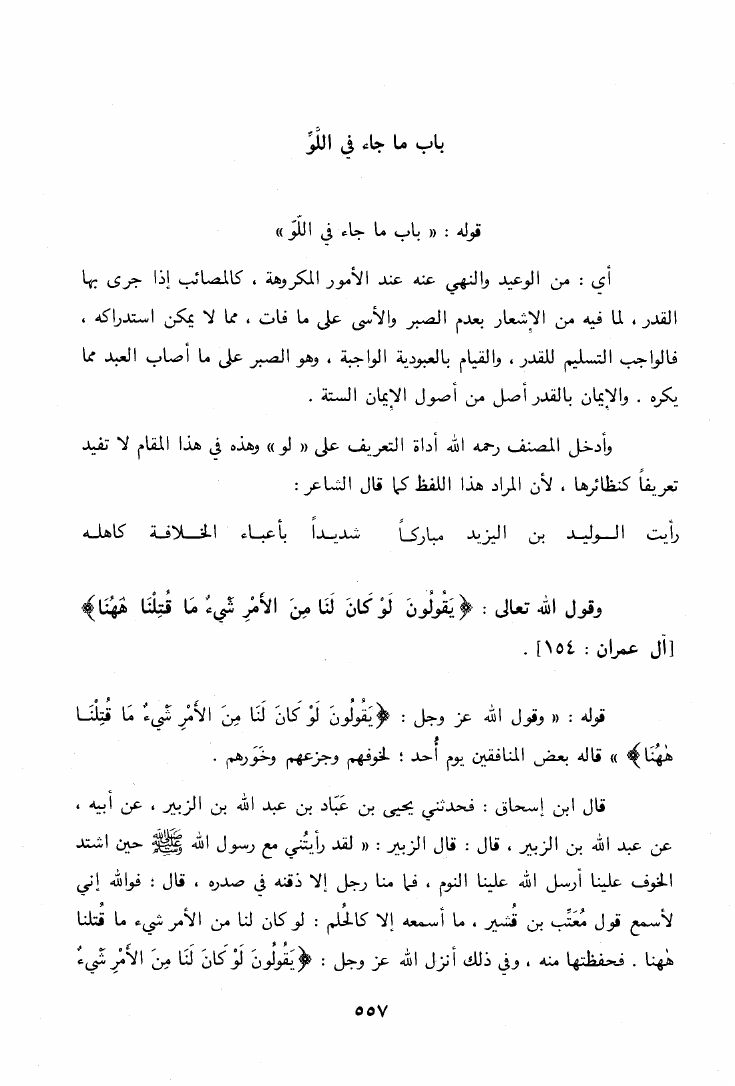 باب ما جاء في اللَّوِّ
قوله : « باب ما جاء في اللَّوّ »
أي : من الوعيد والنهي عنه عند الأمور المكروهة ، كالمصائب إذا جرى بها
القدر ، لما فيه من الإشعار بعدم الصبر والأسى على ما فات ، مما لا يمكن استدراكه ،
فالواجب التسليم للقدر ، والقيام بالعبودية الواجبة ، وهو الصبر على ما أصاب العبد مما
يكره . والإيمان بالقدر أصل من أصول الإيمان الستة .
وأدخل المصنف رحمه الله أداة التعريف على « لو » وهذه في هذا المقام لا تفيد
تعريفاً كنظائرها ، لأن المراد هذا اللفظ كما قال الشاعر :
رأيت الـوليـد بن اليزيد مباركـاً شديـداً بأعبـاء الخـلافـة كاهلـه
وقول الله تعالى : ﴿يَقُولُونَ لَوْ كَانَ لَنَا مِنَ الأَمْرِ شَيْءٌ مَا قُتِلْنَا هَهُنَا﴾
[آل عمران : ١٥٤] .
قوله : « وقول الله عز وجل : ﴿يَقُولُونَ لَوْ كَانَ لَنَا مِنَ الأَمْرِ شَيْءٌ مَا قُتِلْنَـا
هٰهُنَا﴾ » قاله بعض المنافقين يوم أُحد ؛ لخوفهم وجزعهم وخَوَرهم .
قال ابن إسحاق : فحدثني يحيى بن عبَّاد بن عبد الله بن الزبير ، عن أبيه ،
عن عبد الله بن الزبير ، قال : قال الزبير : « لقد رأيتُني مع رسول الله ﷺ حين اشتد
الخوف علينا أرسل الله علينا النوم ، فما منا رجل إلا ذقنه في صدره ، قال : فوالله إني
لأسمع قول مُعَتِّب بن قُشير ، ما أسمعه إلا كالحُلم : لو كان لنا من الأمر شيء ما قُتلنا
هٰهنا . فحفظتها منه ، وفي ذلك أنزل الله عز وجل : ﴿يَقُولُونَ لَوْ كَانَ لَنَا مِنَ الأَمْرِ شَيْءٌ
٥٥٧